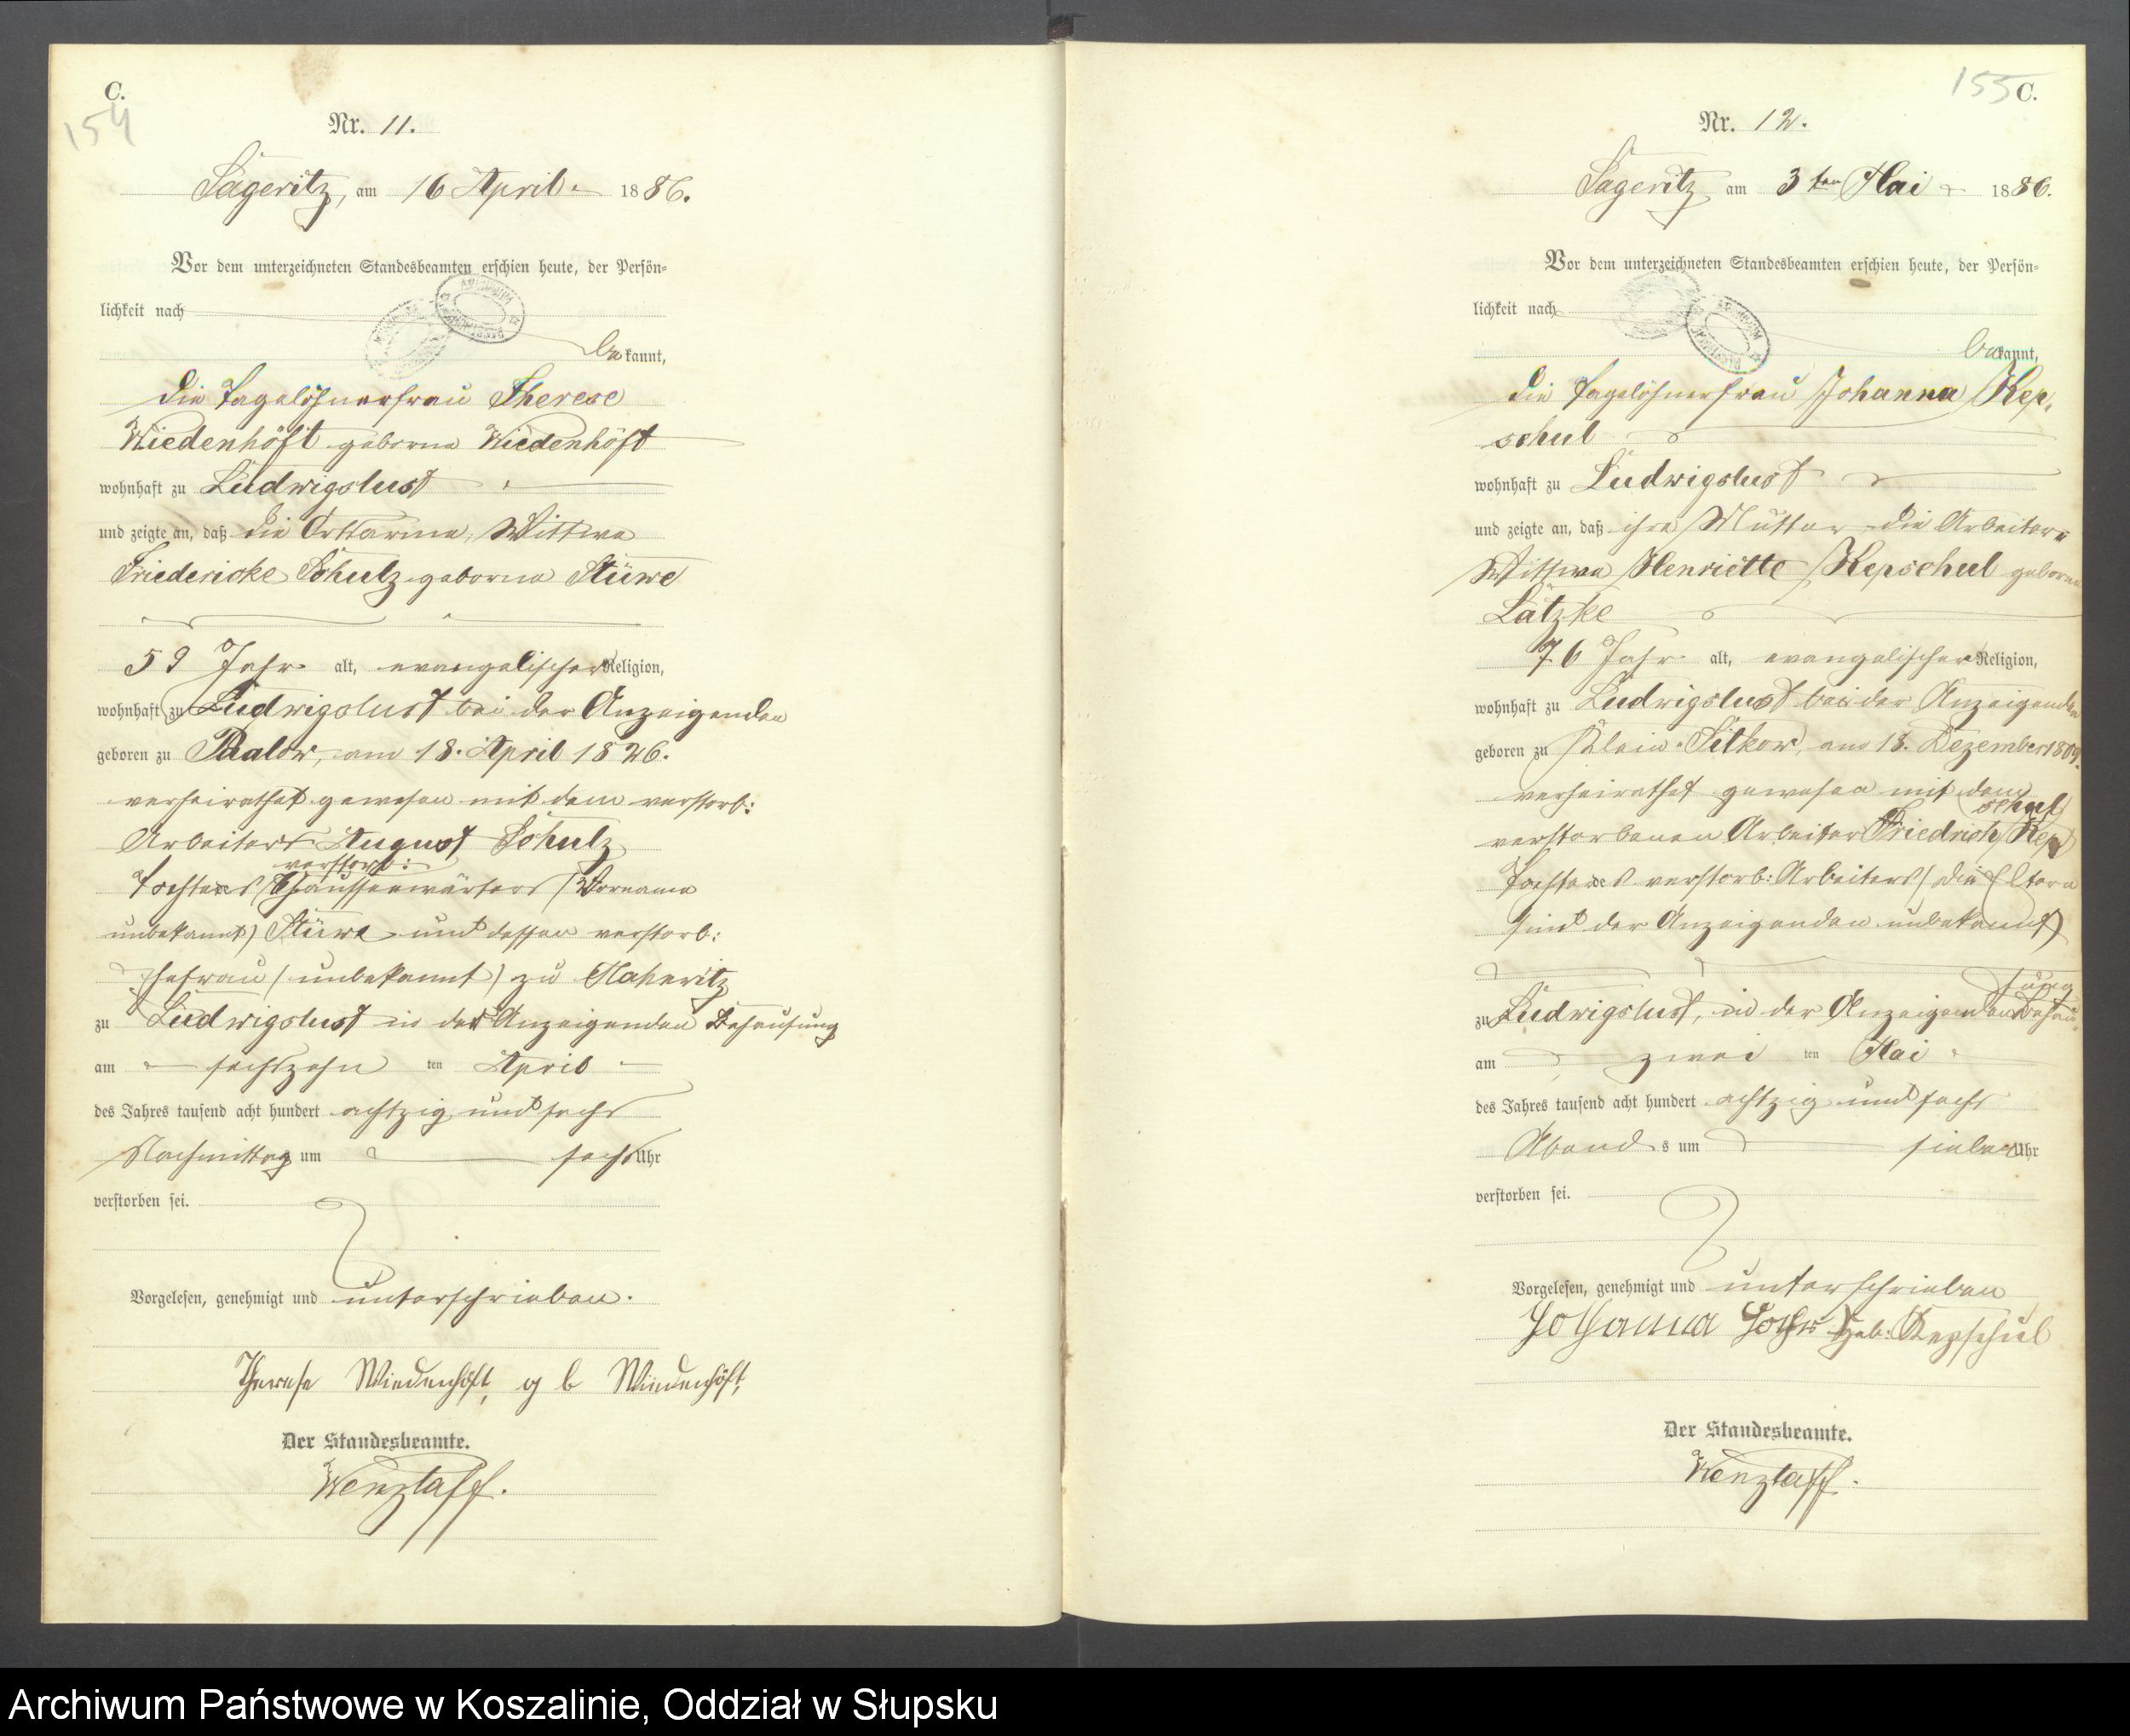 C.
154
Nr. 11.
Sageritz, am 16 April 1886.
Vor dem unterzeichneten Standesbeamten erschien heute, der Persön-
lichkeit nach
bekannt,
die Tagelöhnerfrau Therese
Wiedenhöft geborne Wiedenhöft
wohnhaft zu Ludwigslust
und zeigte an, daß die Ortsarme, Wittwe
Friedericke Schulz geborne Stüwe
59 Jahr alt, evangelischer Religion,
wohnhaft zu Ludwigslust bei der Anzeigenden
geboren zu Paalow, am 18. April 1826.
verheirathet gewesen mit dem verstorb:
Arbeiter August Schulz
verstorb:
Tochter des Chausseewärters (Vorname
unbekannt) Stüwe und dessen verstorb:
Ehefrau (unbekannt) zu
zu Ludwigslust in der Anzeigenden Behausung
am sechszehn ten April
des Jahres tausend acht hundert achtzig und sechs
Nachmittag um sechs Uhr
verstorben sei.
Vorgelesen, genehmigt und unterschrieben.
Therese Wiedenhöft, g b Wiedenhöft,
Der Standesbeamte.
Wenzlaff.
155 C.
Nr. 12.
Sageritz am 3ten Mai 1886.
Vor dem unterzeichneten Standesbeamten erschien heute, der Persön-
lichkeit nach
bekannt,
die Tagelöhnerfrau Johanna Kep-
schul
wohnhaft zu Ludwigslust
und zeigte an, daß ihre Mutter die Arbeiter-
Wittwe Henriette Kepschul geborne
Latzke
76 Jahr alt, evangelischer Religion,
wohnhaft zu Ludwigslust bei der Anzeigenden
geboren zu Klein-Silkow, am 18. Dezember 1809.
verheirathet gewesen mit dem
schul
verstorbenen Arbeiter Friedrich Kep
Tochter des verstorb: Arbeiters (die Eltern
sind der Anzeigenden unbekannt)
sung
zu Ludwigslust, in der Anzeigenden Behau-
am zwei ten Mai
des Jahres tausend acht hundert achtzig und sechs
Abends um sieben Uhr
verstorben sei.
Vorgelesen, genehmigt und unterschrieben
Johanna geb. Kepschul
Der Standesbeamte.
Wenzlaff.
Archiwum Państwowe w Koszalinie, Oddział w Słupsku